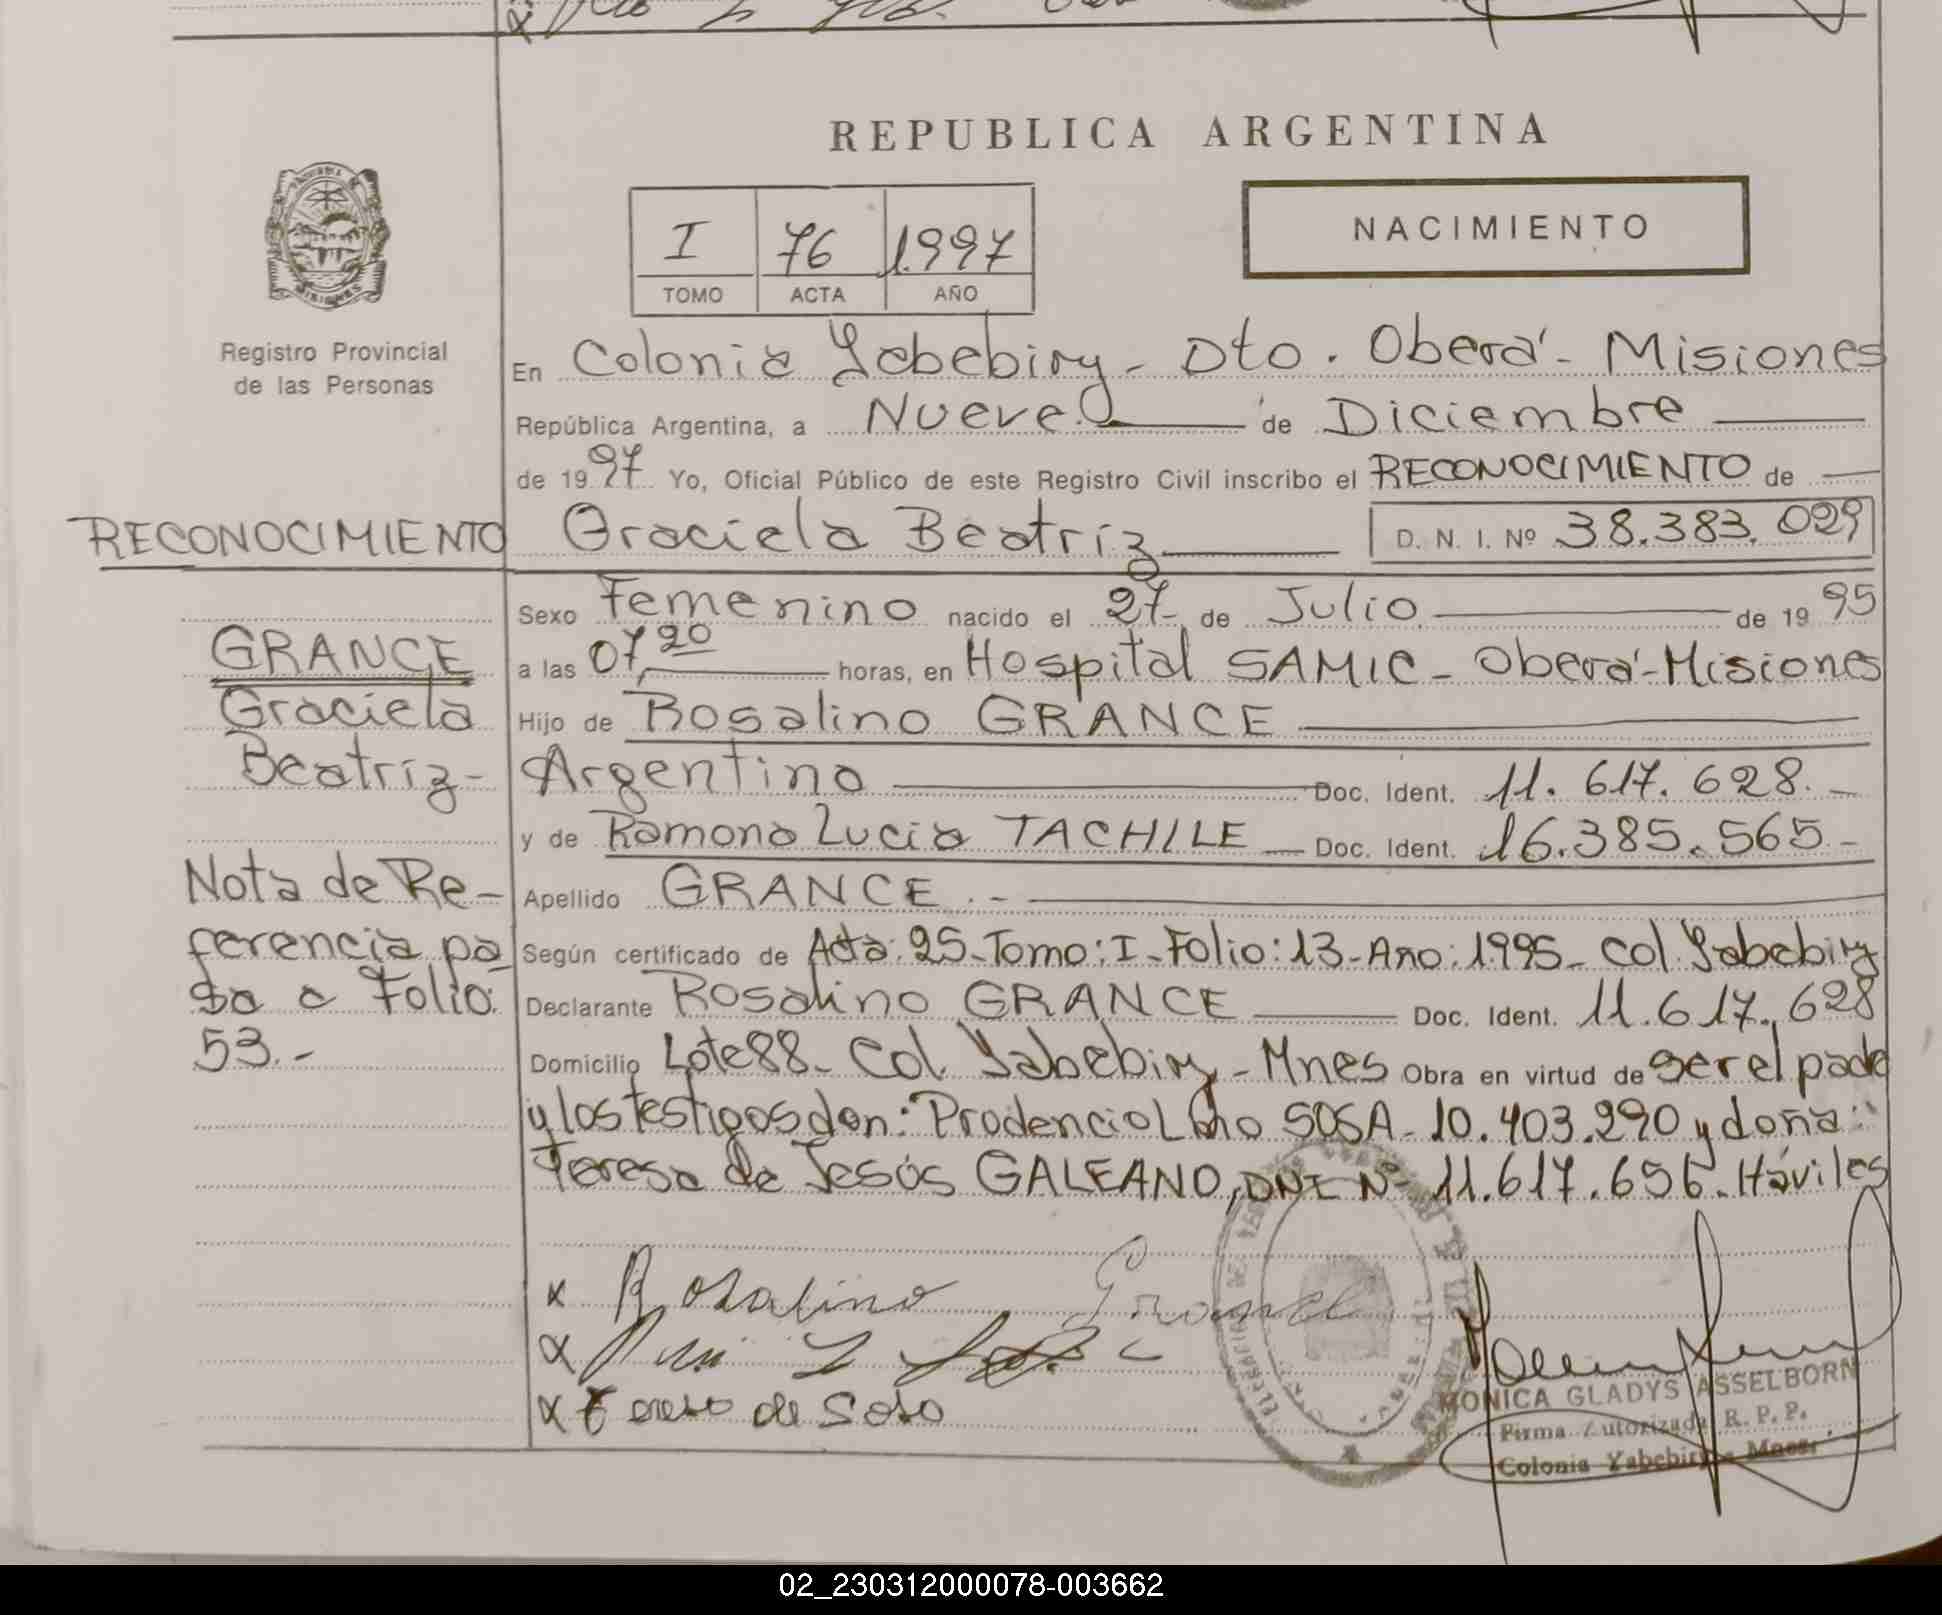 REPUBLICA ARGENTINA
I 76 1.997
TOMO ACTA AÑO
NACIMIENTO
Registro Provincial
de las Personas
En Colonia Yabebiry - Dto. Oberá - Misiones
República Argentina, a Nueve de Diciembre
de 19 97 Yo, Oficial Público de este Registro Civil inscribo el RECONOCIMIENTO de
RECONOCIMIENTO
Graciela Beatriz D. N. I. Nº 38.383.029
Sexo Femenino nacido el 27 de Julio de 19 95
a las 07,20 horas, en Hospital SAMIC - Oberá - Misiones
Hijo de Rosalino GRANCE
Argentino Doc. Ident. 11.617.628.-
y de Ramona Lucia TACHILE Doc. Ident. 16.385.565-
Apellido GRANCE.-
Según certificado de Acta: 25-Tomo: I-Folio: 13-Año: 1.995- Col. Yabebiry
Declarante Rosalino GRANCE Doc. Ident. 11.617.628
Domicilio Lote 88- Col. Yabebiry - Mnes Obra en virtud de ser el padre
y los testigos don: Prodencio SOSA- 10.403.290 y doña:
Teresa de Jesús GALEANO, DNI Nº 11.617.656. Háviles
GRANCE
Graciela
Beatriz-
Nota de Re-
ferencia pa
sa a Folio:
53.-
x Rosalino Grance
x
x Tereso de Soso
MONICA GLADYS ASSELBORN
Firma Autorizada R. P. P.
Colonia Yabebiry - Mnes.
02_230312000078-003662